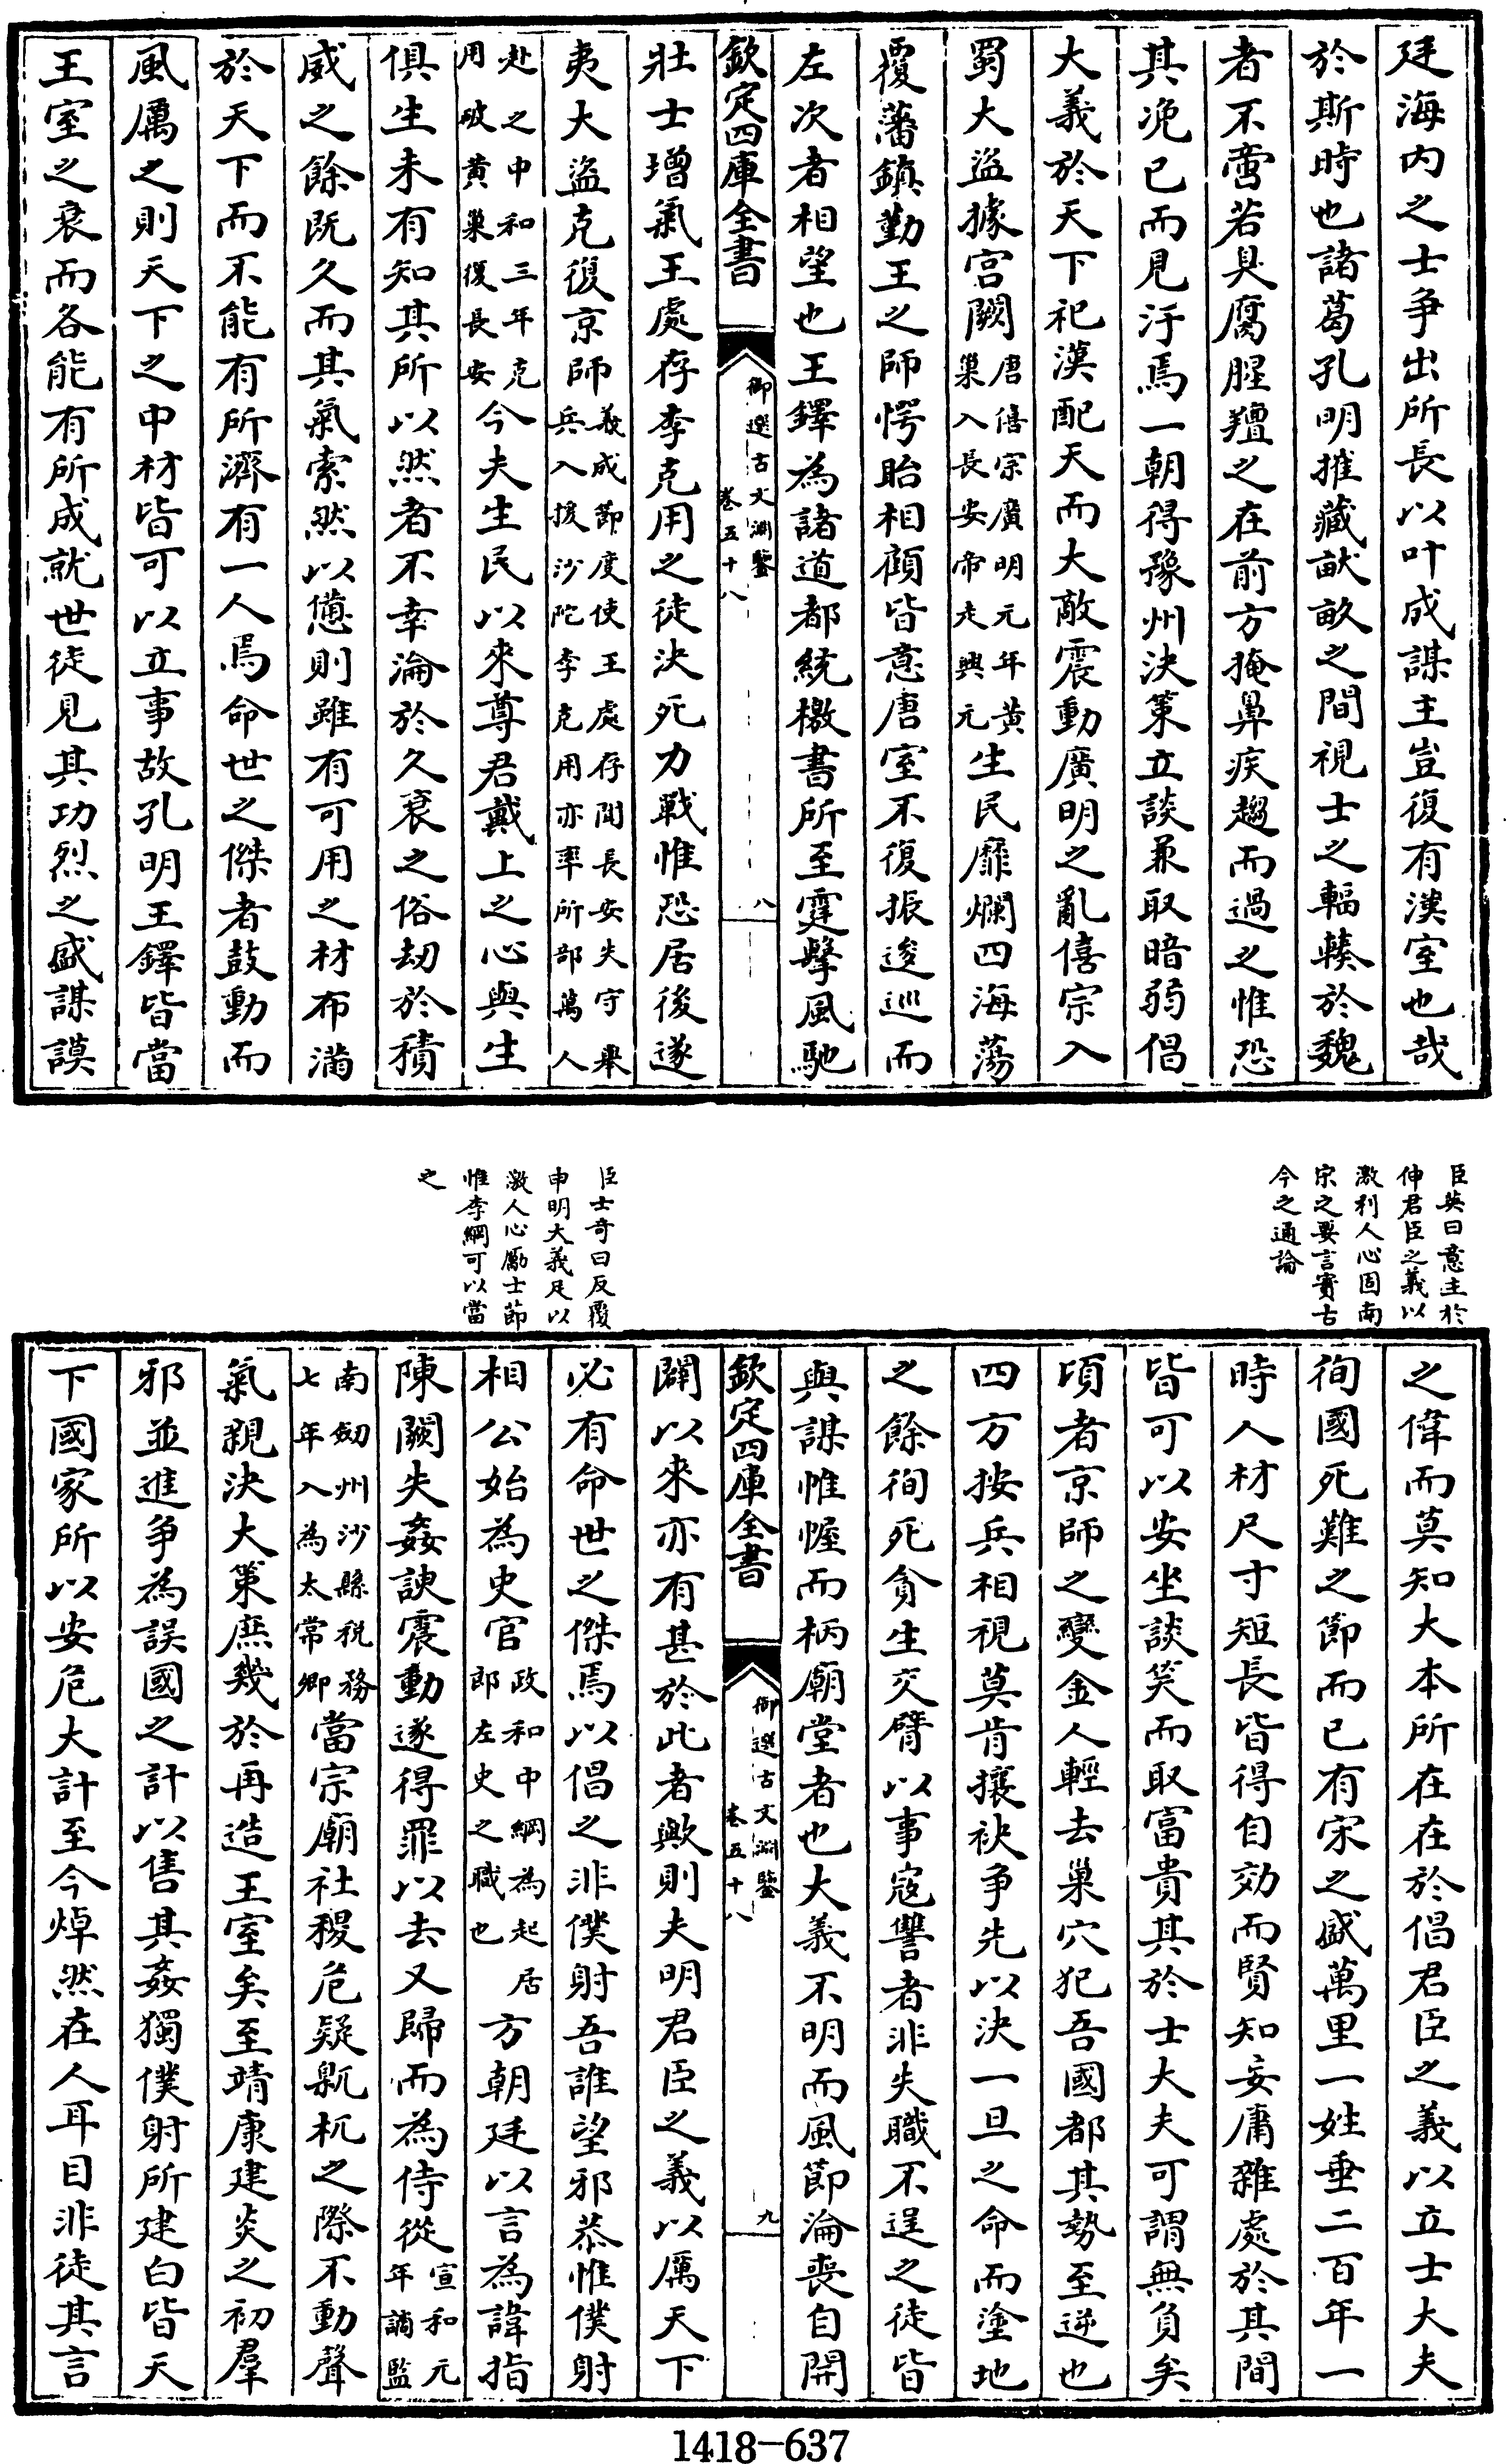 廷海内之士争出所長以叶成謀主豈復有漢室也哉
於斯時也諸葛孔明推藏畎畝之間視士之輻輳於魏
者不啻若臭腐腥羶之在前方掩鼻疾趨而過之惟恐
其浼已而見汙焉一朝得豫州決策立談兼取暗弱倡
大義於天下祀漢配天而大敵震動廣明之亂僖宗入
蜀大盜據宫闕
唐僖宗廣明元年黄
巢入長安帝走興元
生民靡爛四海蕩
覆藩鎮勤王之師愕眙相顧皆意唐室不復振逡巡而
左次者相望也王鐸為諸道都統檄書所至霆擊風馳
欽定四庫全書
御選古文淵鑒
卷五十八
八
壯士增氣王處存李克用之徒決死力戰惟恐居後遂
夷大盜克復京師
義成節度使王處存聞長安失守舉
兵入援沙陀李克用亦率所部萬人
赴之中和三年克
用破黄巢復長安
今夫生民以來尊君戴上之心與生
俱生未有知其所以然者不幸淪於久衰之俗刼於積
威之餘既久而其氣索然以憊則雖有可用之材布滿
於天下而不能有所濟有一人焉命世之傑者鼓動而
風厲之則天下之中材皆可以立事故孔明王鐸皆當
王室之衰而各能有所成就世徒見其功烈之盛謀謨
臣英曰意主於
伸君臣之義以
激利人心固南
宋之要言實古
今之通論
臣士奇曰反覆
申明大義足以
激人心勵士節
惟李綱可以當
之
之偉而莫知大本所在在於倡君臣之義以立士大夫
徇國死難之節而已有宋之盛萬里一姓垂二百年一
時人材尺寸短長皆得自効而賢知妄庸雜處於其間
皆可以安坐談笑而取富貴其於士大夫可謂無負矣
頃者京師之變金人輕去巢穴犯吾國都其勢至逆也
四方按兵相視莫肯攘袂争先以決一旦之命而塗地
之餘徇死貪生交臂以事寇讐者非失職不逞之徒皆
與謀惟幄而柄廟堂者也大義不明而風節淪喪自開
欽定四庫全書
御選古文淵鑒
卷五十八
九
闢以來亦有甚於此者歟則夫明君臣之義以厲天下
必有命世之傑焉以倡之非僕射吾誰望邪恭惟僕射
相公始為史官
政和中綱為起居
郎左史之職也
方朝廷以言為諱指
陳闕失姦諛震動遂得罪以去又歸而為侍從
宣和元
年謫監
南劎州沙縣税務
七年入為太常卿
當宗廟社稷危疑臲杌之際不動聲
氣親決大策庶幾於再造王室矣至靖康建炎之初羣
邪並進争為誤國之計以售其姦獨僕射所建白皆天
下國家所以安危大計至今焯然在人耳目非徒其言
1418-637